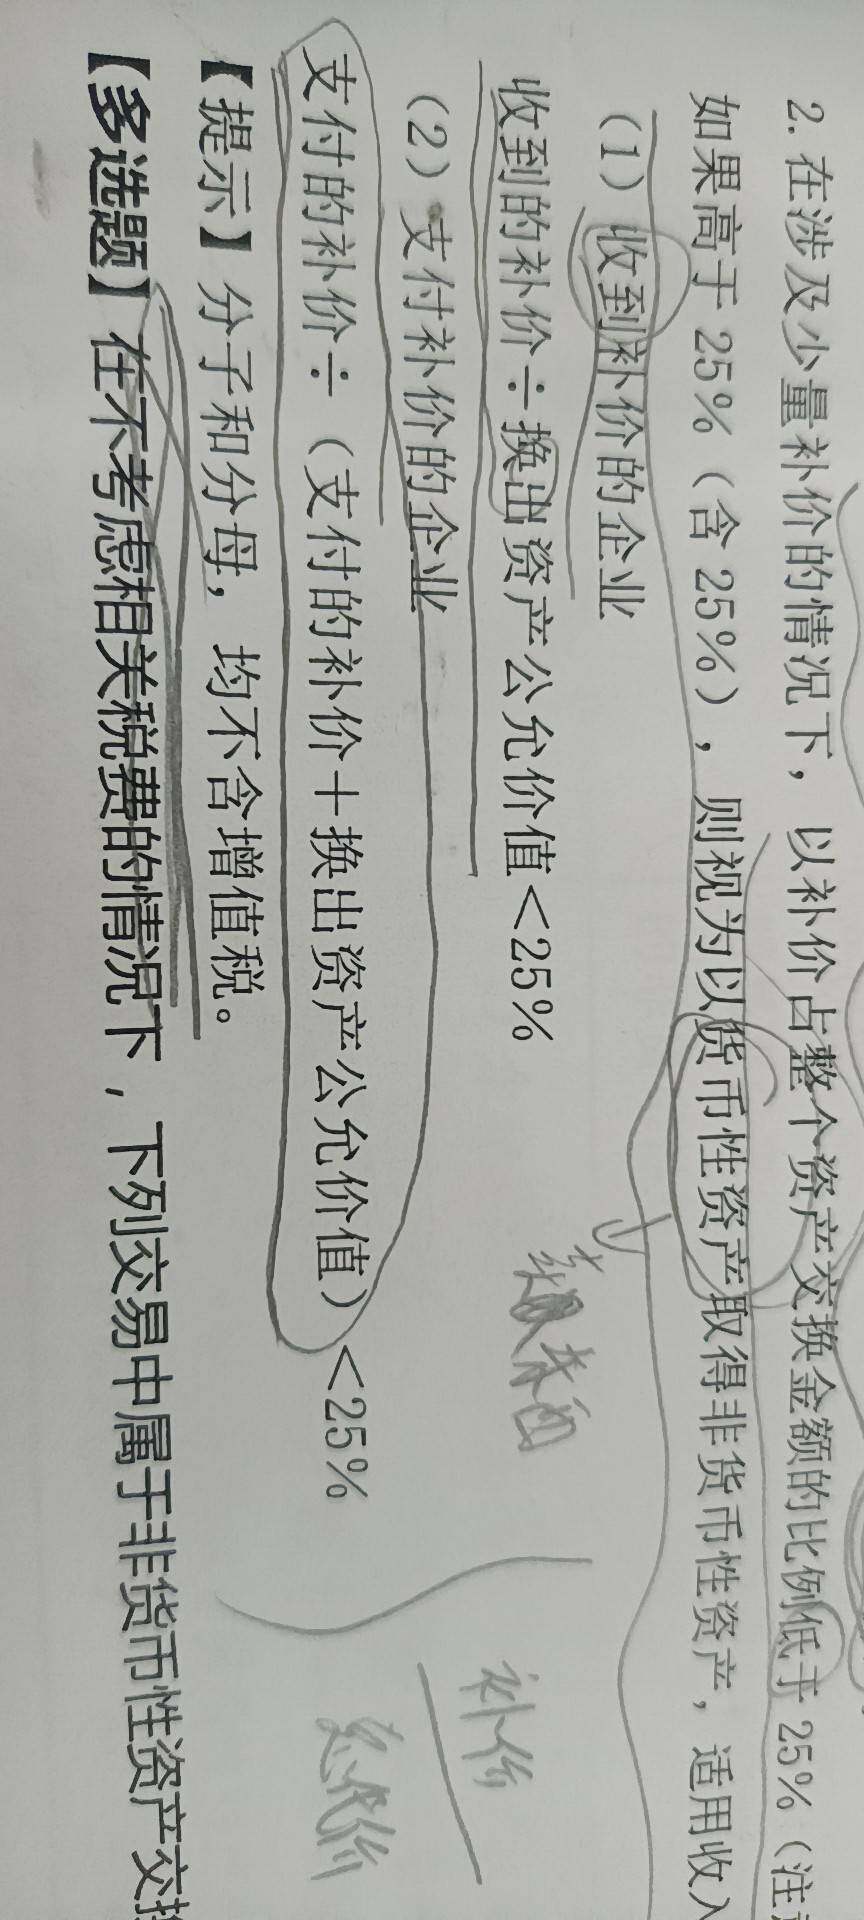 2. 在涉及少量补价的情况下，以补价占整个资产交换金额的比例低于 25%（注
如果高于 25%（含 25%），则视为以货币性资产取得非货币性资产，适用收入
（1）收到补价的企业
收到的补价÷换出资产公允价值＜25%
（2）支付补价的企业
支付的补价÷（支付的补价＋换出资产公允价值）＜25%
【提示】分子和分母，均不含增值税。
【多选题】在不考虑相关税费的情况下，下列交易中属于非货币性资产交换
补价
总代价